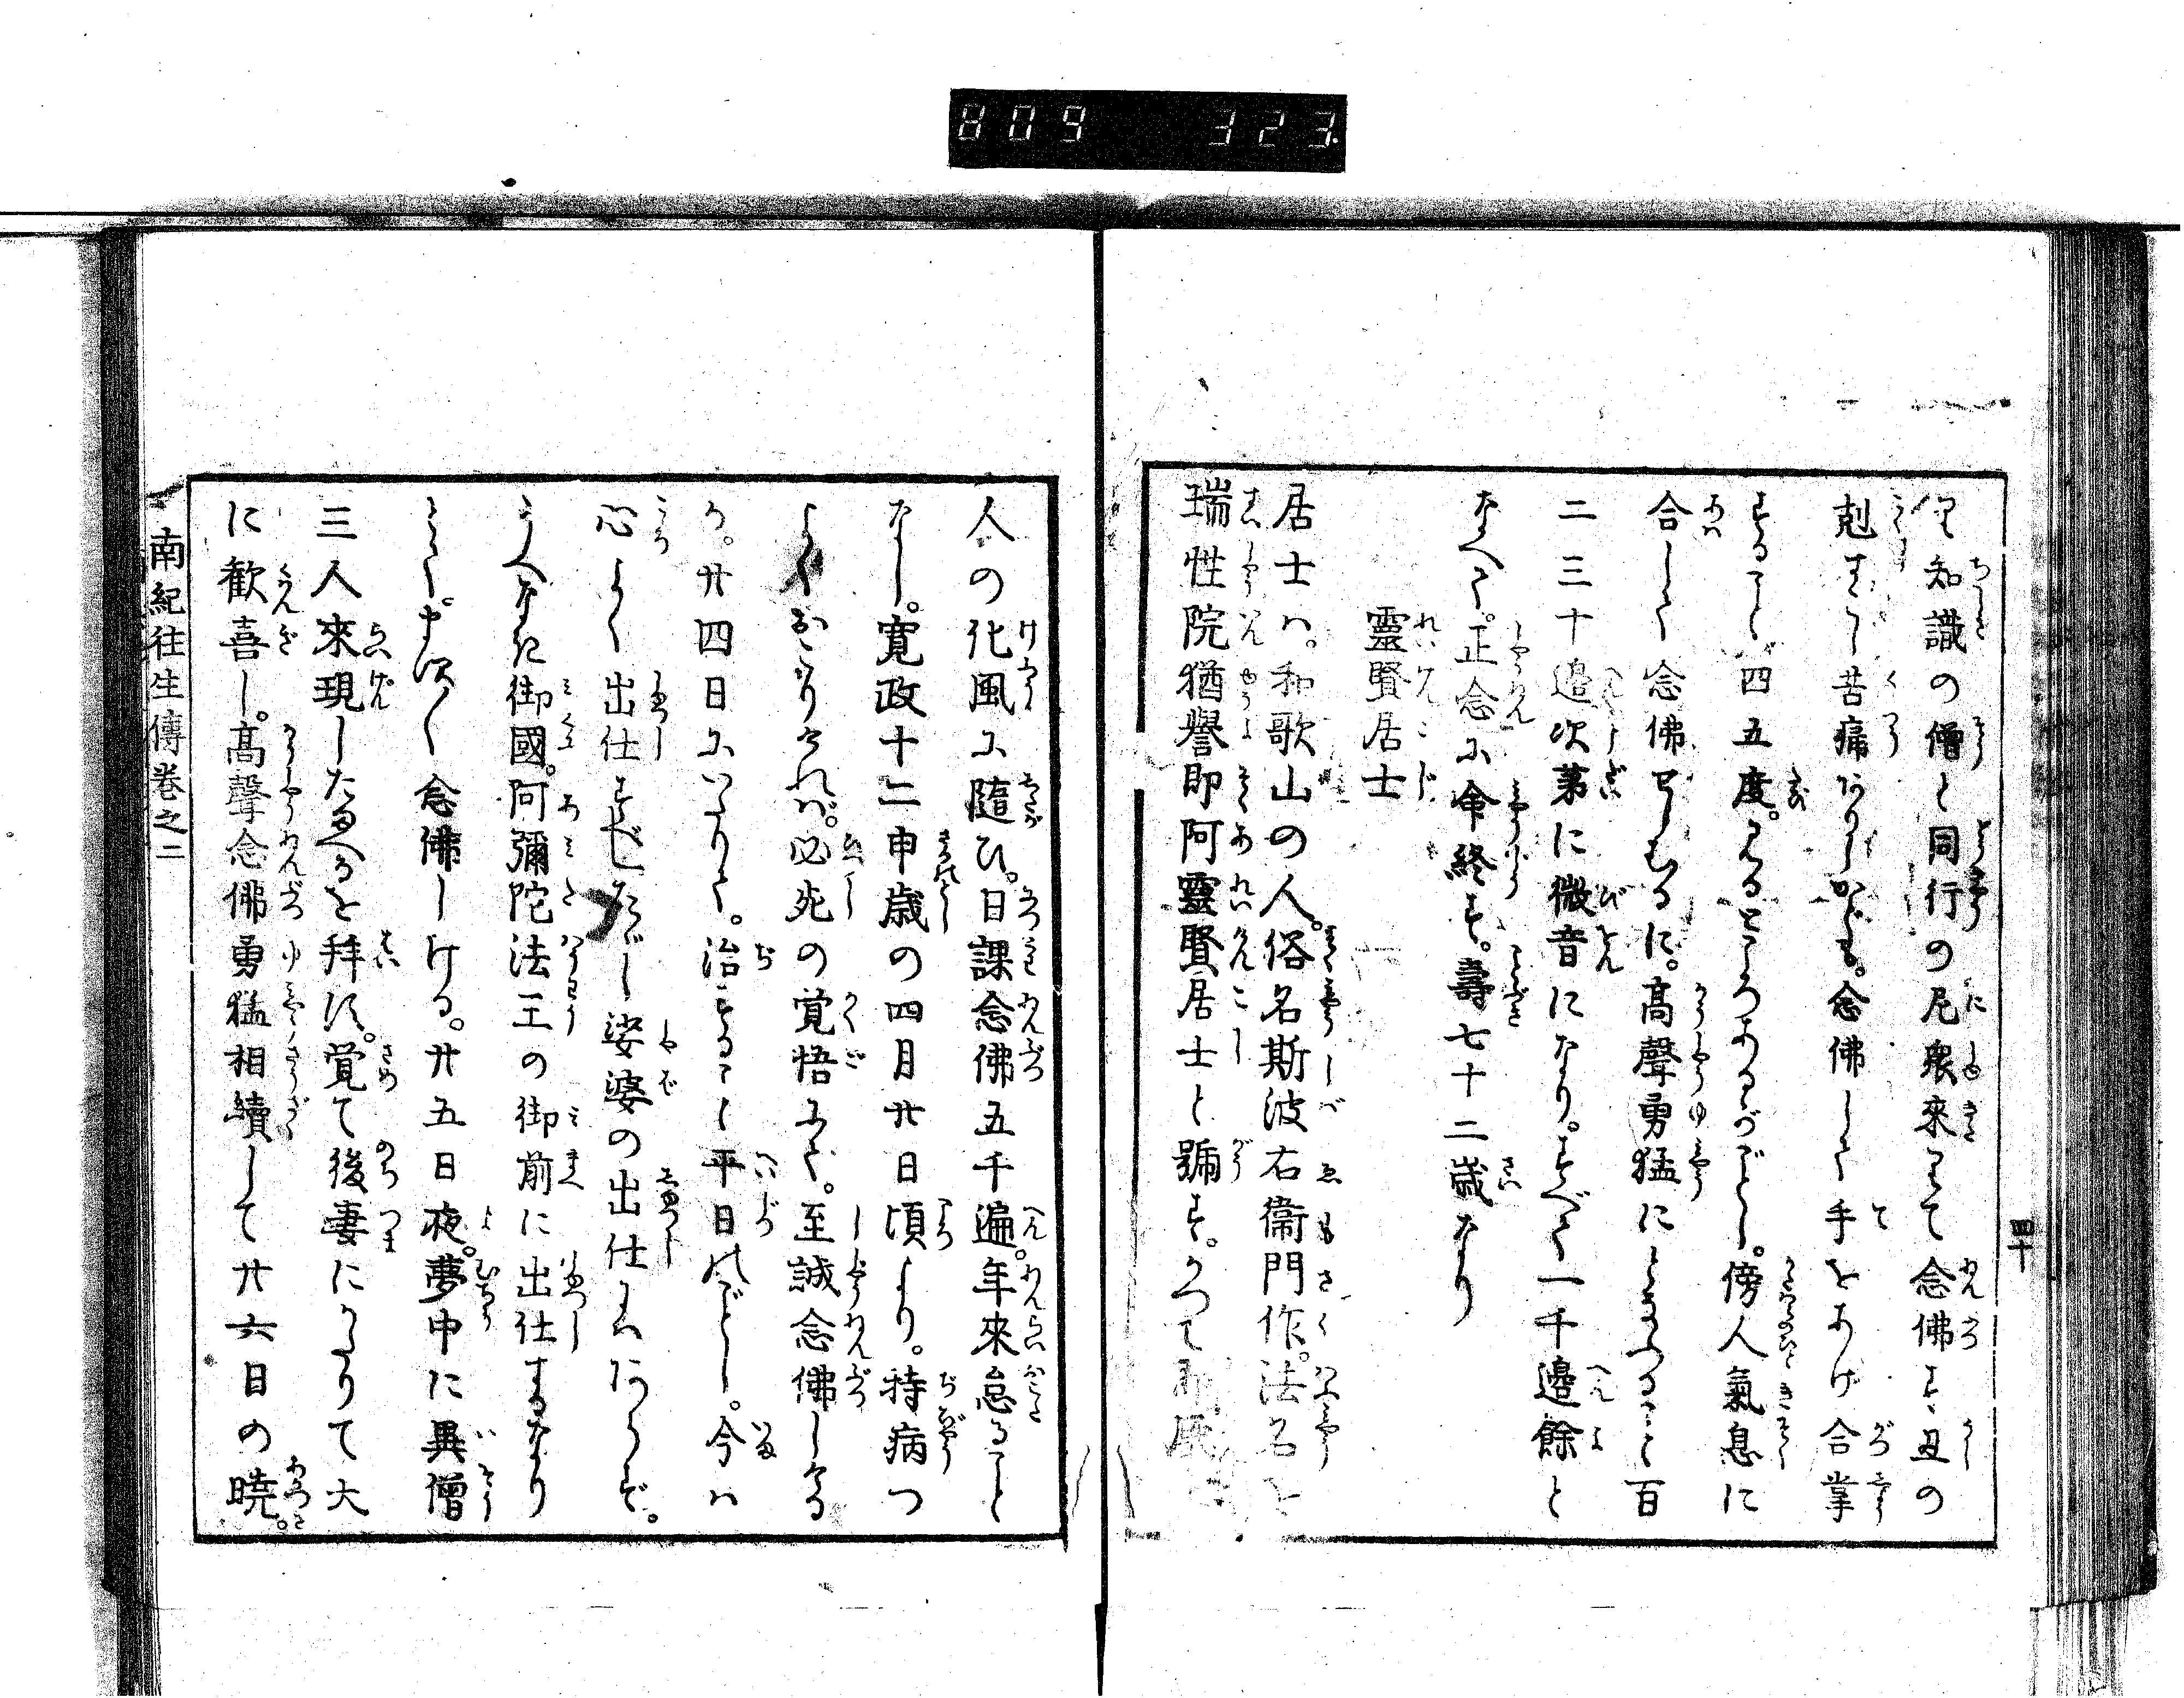 809 323
四十
り知識の僧と同行の尼衆來りて念佛す丑の
剋すぎ苦痛ありしかども。念佛して手をあけ合掌
すること四五度。みるところあるがごとし。傍人氣息に
合して念佛せしむるに。髙聲勇猛にとなふること百
二三十邉次第に微音になり。すべて一千邉餘と
なへて。正念に命終す。壽七十二歳なり
靈賢居士
居士ハ。和歌山の人。俗名斯波右衞門作。法名を
瑞性院猶譽即阿靈賢居士と號す。かつて
人の化風に隨ひ。日課念佛五千遍。年來怠ること
なし。寛政十二申歳の四月廿日頃より。持病つ
よくおこりけれバ。必死の覚悟にて。至誠念佛しける
が。廿四日にいたりて。治すること平日のごとし。今ハ
心よく出仕すべしたゞし娑婆の出仕にハあらず。
うへなき御國。阿彌陀法王の御前に出仕するなり
とて。ますく念佛しける。廿五日夜。夢中に異僧
三人來現したまへるを拜す。覚て後妻にかたりて大
に歓喜し。髙聲念佛勇猛相續して廿六日の暁。
南紀往生傳巻之二